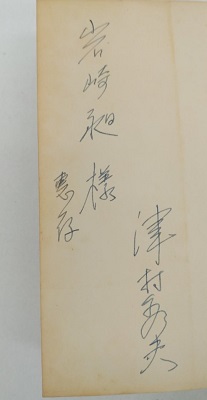 津村秀夫
岩崎昶様
恵存